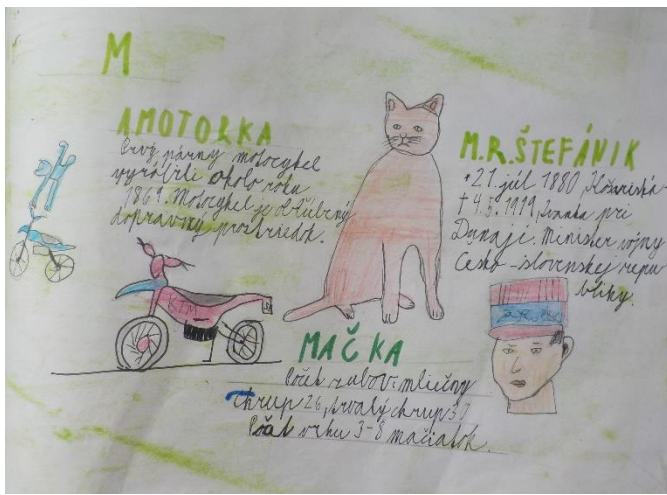 M
AMOTORKA
Prvý párny motocykel
vyrábili okolo roku
1869. Motocykel je obľúbený
dopravný prostriedok.
KTM
M.R.ŠTEFÁNIK
* 21. júl 1880, Košariská
† 4.5. 1919, Ivanka pri
Dunaji. Minister vojny
Česko-slovenskej repu
bliky.
MAČKA
Počet zubov: mliečny
chrup 26, trvalý chrup 30
Počet vrhu 3-8 mačiatok.